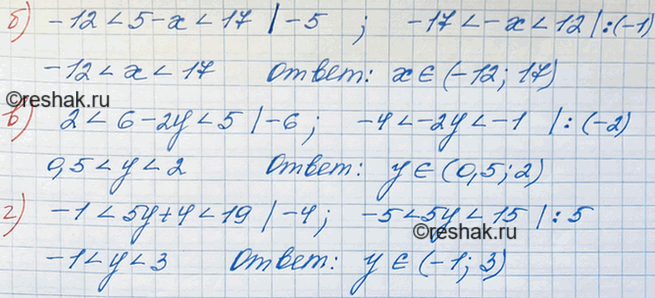 б) -12 < 5-x < 17 | -5 ; -17 < -x < 12 | :(-1)
-12 < x < 17 Ответ: x ∈ (-12; 17)
©reshak.ru
в) 2 < 6-2y < 5 | -6; -4 < -2y < -1 | :(-2)
0,5 < y < 2 Ответ: y ∈ (0,5; 2)
г) -1 < 5y+4 < 19 | -4; -5 < 5y < 15 | :5
©reshak.ru
-1 < y < 3 Ответ: y ∈ (-1; 3)